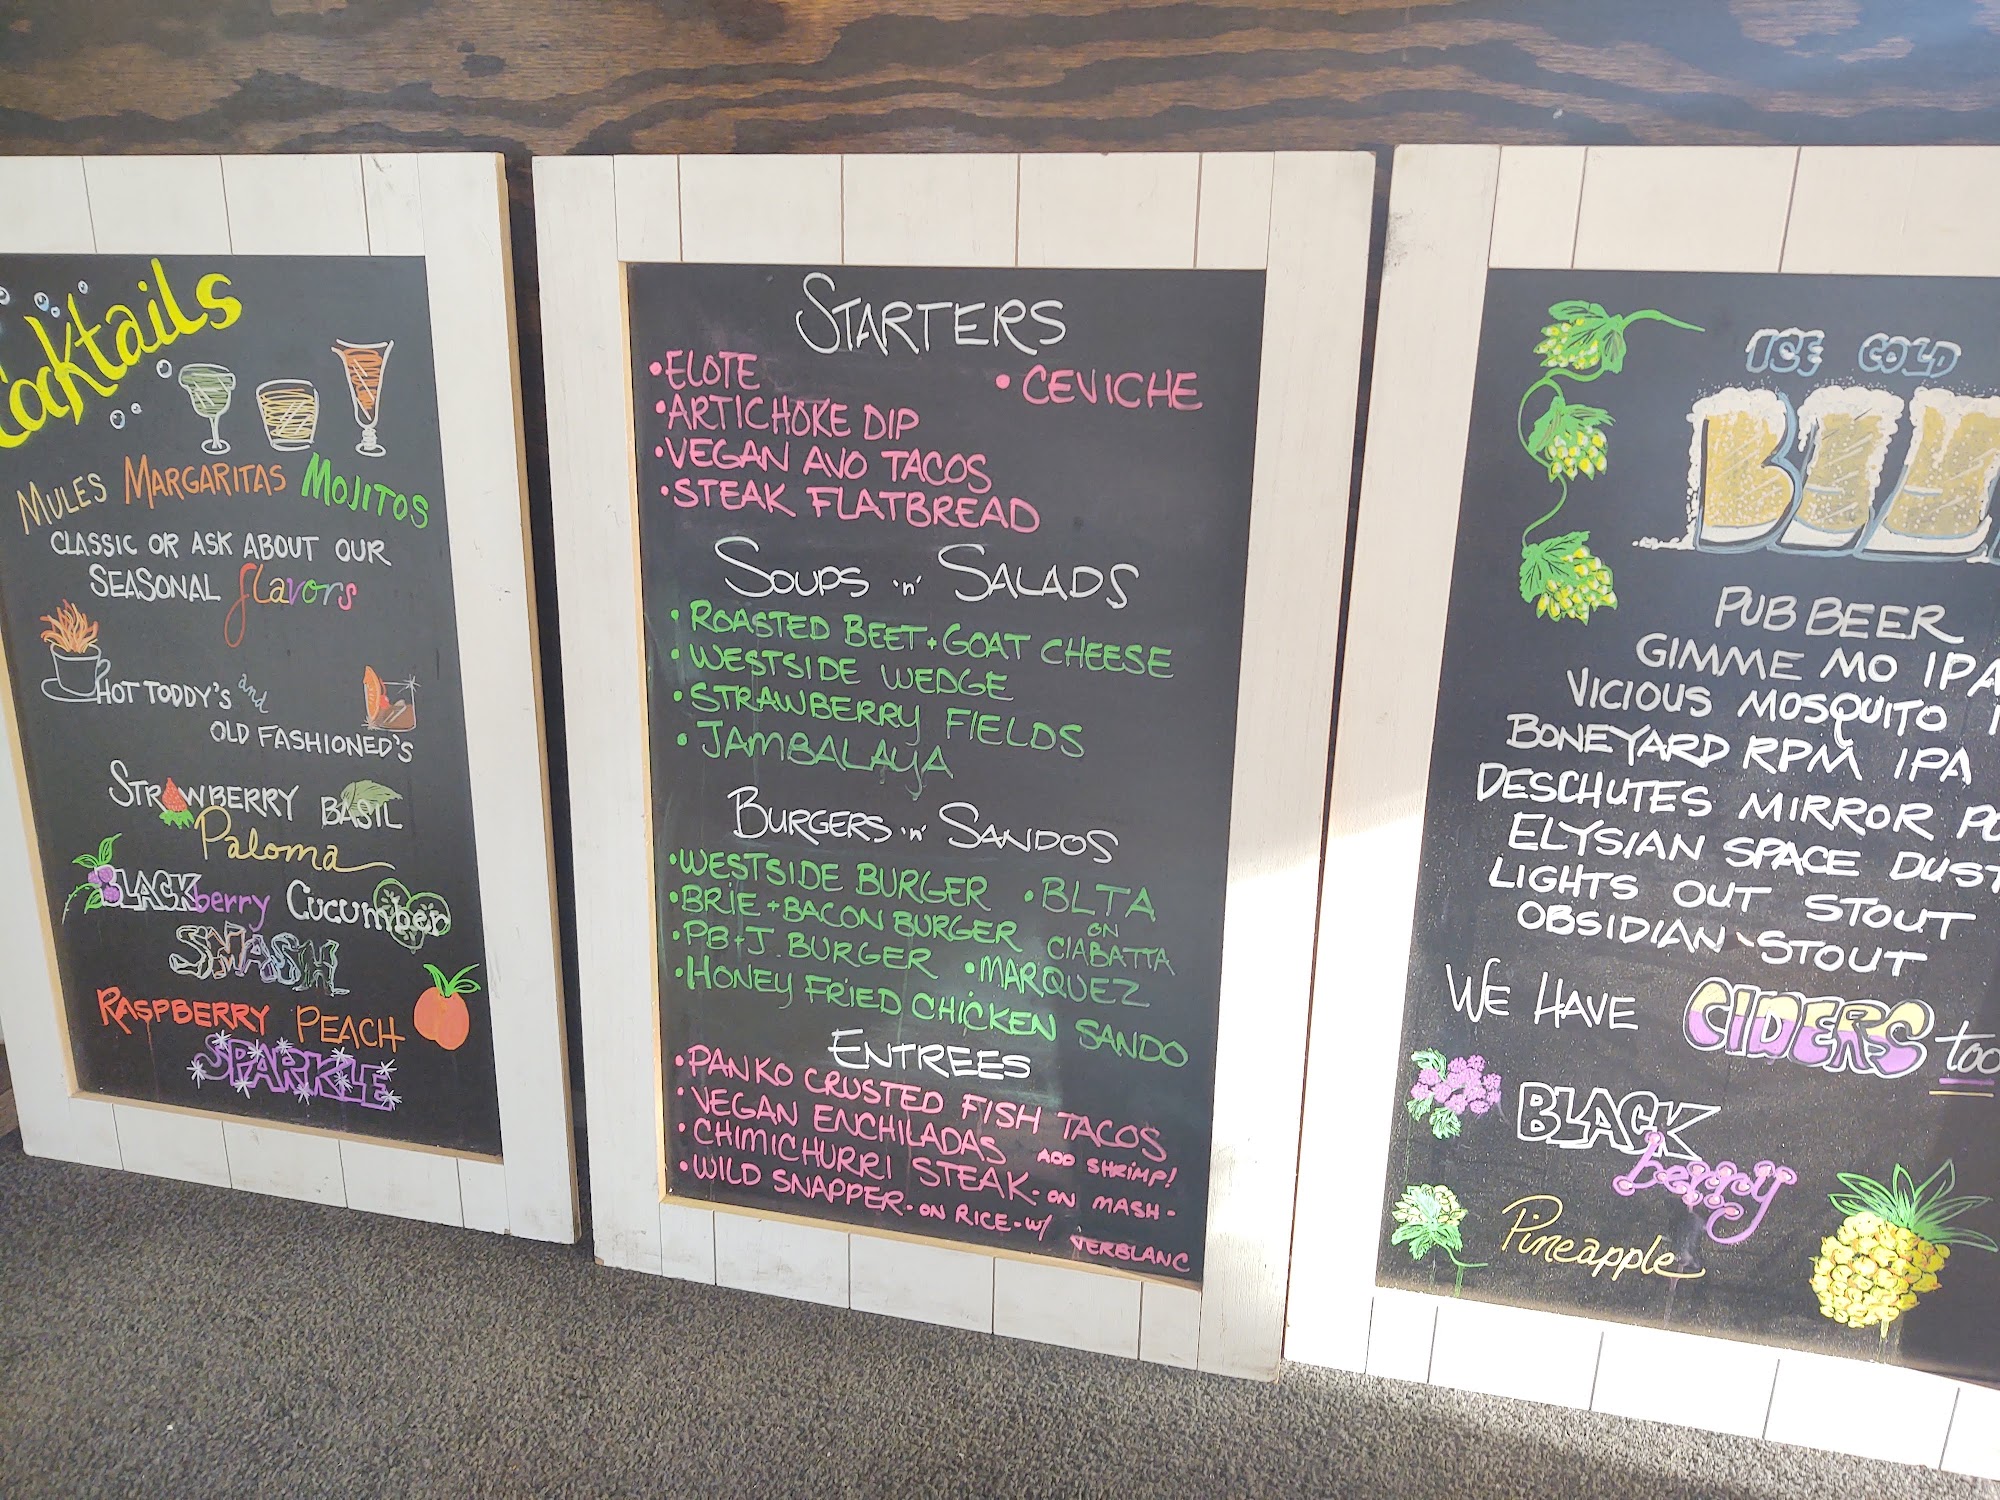 Cocktails
MULES MARGARITAS MOJITOS
CLASSIC OR ASK ABOUT OUR
SEASONAL flavors
HOT TODDY'S and
OLD FASHIONED'S
STRAWBERRY BASIL
Paloma
BLACKberry CUCUMBER
SMASH
RASPBERRY PEACH
SPARKLE
STARTERS
• ELOTE
• CEVICHE
• ARTICHOKE DIP
• VEGAN AVO TACOS
• STEAK FLATBREAD
SOUPS 'n' SALADS
• ROASTED BEET + GOAT CHEESE
• WESTSIDE WEDGE
• STRAWBERRY FIELDS
• JAMBALAYA
BURGERS 'n' SANDOS
• WESTSIDE BURGER
• BLTA
ON
CIABATTA
• BRIE + BACON BURGER
• PB + J. BURGER
• MARQUEZ
• HONEY FRIED CHICKEN SANDO
ENTREES
• PANKO CRUSTED FISH TACOS
• VEGAN ENCHILADAS ADD SHRIMP!
• CHIMICHURRI STEAK - ON MASH -
• WILD SNAPPER - ON RICE - W/ VERBLANC
ICE COLD
BEE
PUB BEER
GIMME MO IPA
VICIOUS MOSQUITO
BONEYARD RPM IPA
DESCHUTES MIRROR PO
ELYSIAN SPACE DUST
LIGHTS OUT STOUT
OBSIDIAN - STOUT
WE HAVE CIDERS too
BLACK
berry
Pineapple